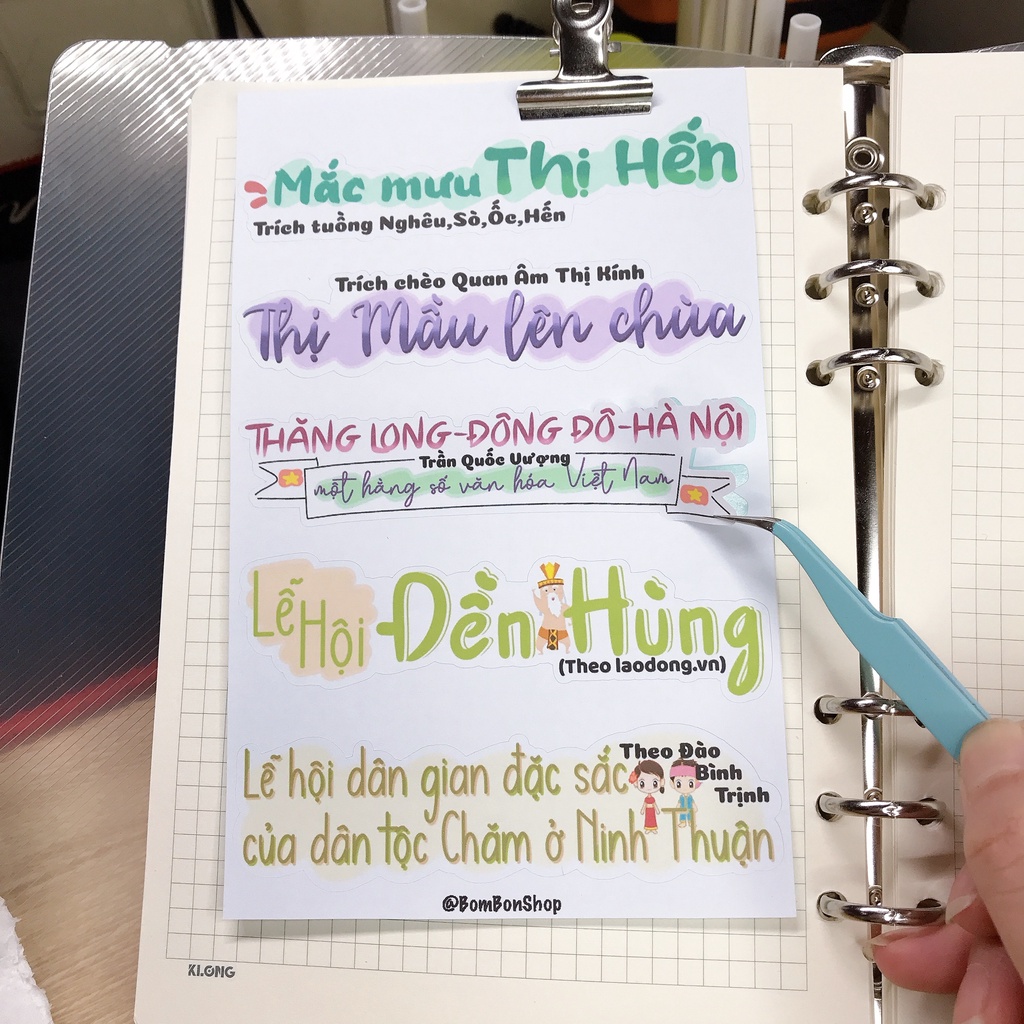 Mắc mưu Thị Hến
Trích tuồng Nghêu,Sò,Ốc,Hến
Trích chèo Quan Âm Thị Kính
Thị Mầu lên chùa
THĂNG LONG-ĐÔNG ĐÔ-HÀ NỘI
Trần Quốc Vượng
một hằng số văn hóa Việt Nam
Lễ Hội Đền Hùng
(Theo laodong.vn)
Theo Đào Bình Trịnh
Lễ hội dân gian đặc sắc
của dân tộc Chăm ở Ninh Thuận
@BomBonShop
KLONG